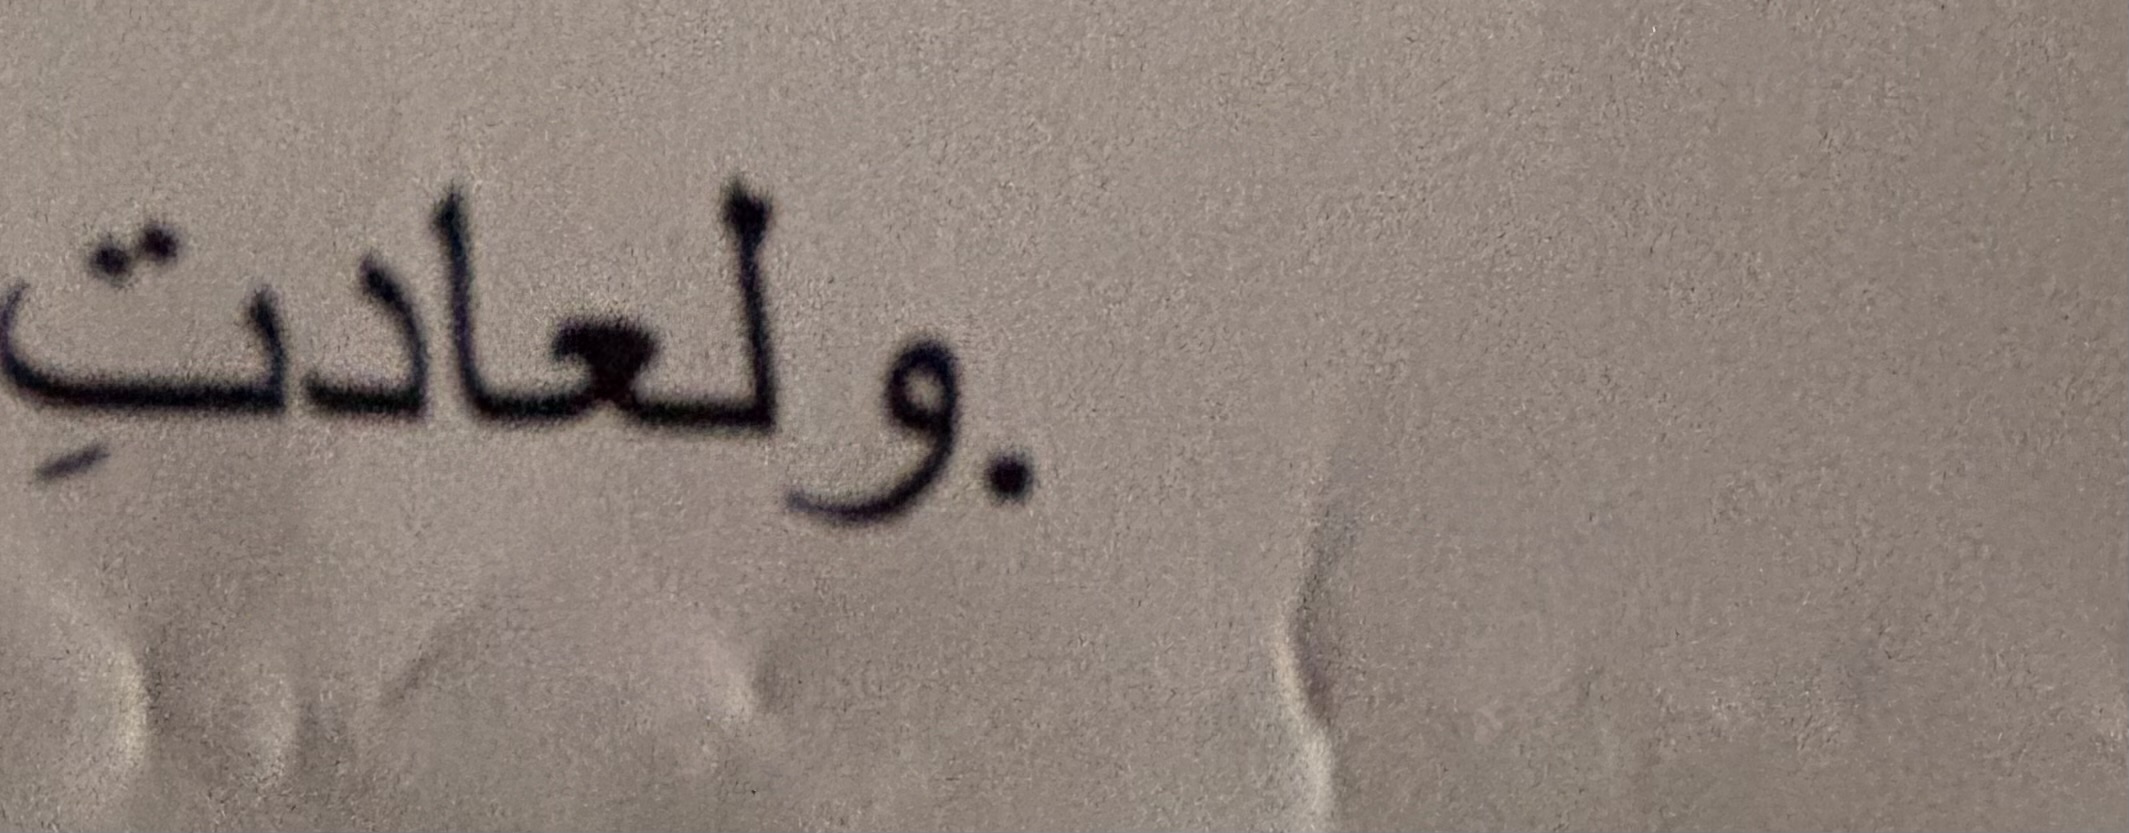 .ولعادتِ